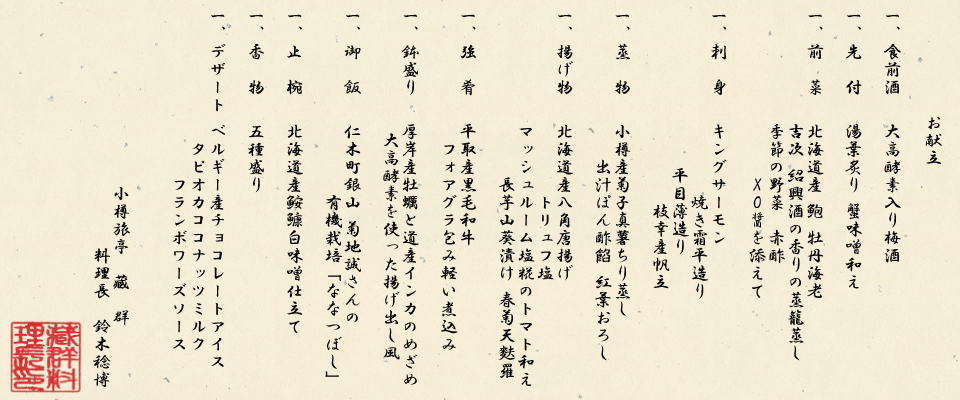 お献立
一、食前酒 大高酵素入り梅酒
一、先付 湯葉炙り 蟹味噌和え
一、前菜 北海道産 鮑 牡丹海老
吉次 紹興酒の香りの蒸籠蒸し
季節の野菜 赤酢
XO醤を添えて
一、刺身 キングサーモン
焼き霜平造り
平目薄造り
枝幸産帆立
一、蒸物 小樽産菊子真薯ちり蒸し
出汁ぽん酢餡 紅葉おろし
一、揚げ物 北海道産八角唐揚げ
トリュフ塩
マッシュルーム塩糀のトマト和え
長芋山葵漬け 春菊天麩羅
一、強肴 平取産黒毛和牛
フォアグラ包み軽い煮込み
一、鉢盛り 厚岸産牡蠣と道産インカのめざめ
大高酵素を使った揚げ出し風
一、御飯 仁木町銀山 菊地誠さんの
有機栽培「ななつぼし」
一、止椀 北海道産鮟鱇白味噌仕立て
一、香物 五種盛り
一、デザート ベルギー産チョコレートアイス
タピオカココナッツミルク
フランボワーズソース
小樽旅亭 藏 群
料理長 鈴木稔博
蔵群料
理長印